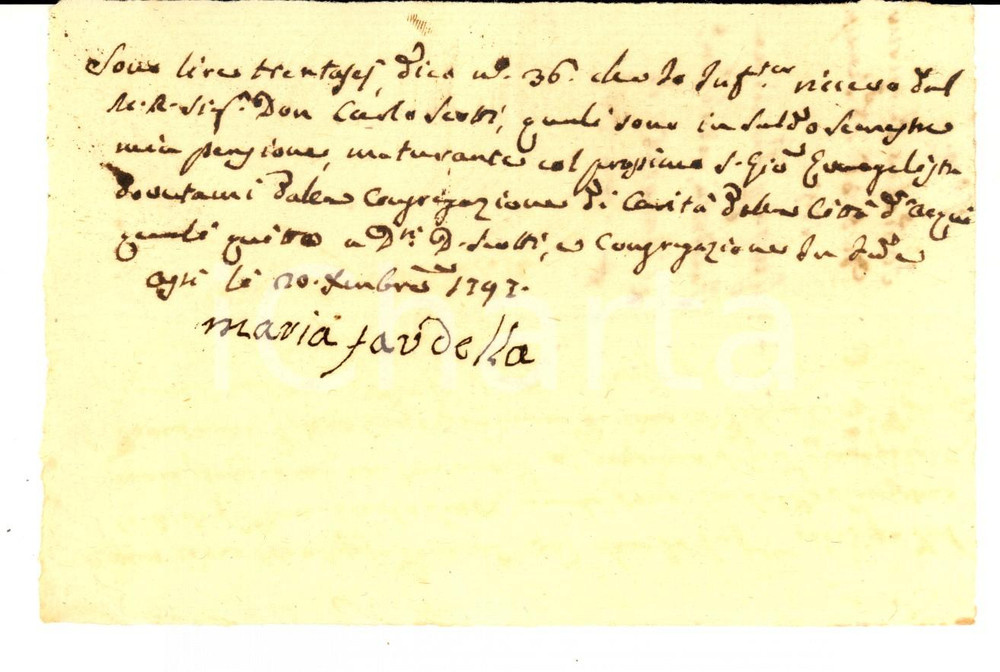 Sono lire trentasej, dico n.° 36. che Io Inf.tta ricevo dal
M.R. Sig.r Don Carlo Scotti, quali sono in saldo semestre
mia pensione, maturante col prossimo S. Gio Evangelista
dovutami dalla Congregazione di Carità della Città d'Acqui
quali quitto a D.ti D. Scotti, e Congregazione In Fede
Aqui li 20. Xmbre 1797.
maria favdella
iCharta